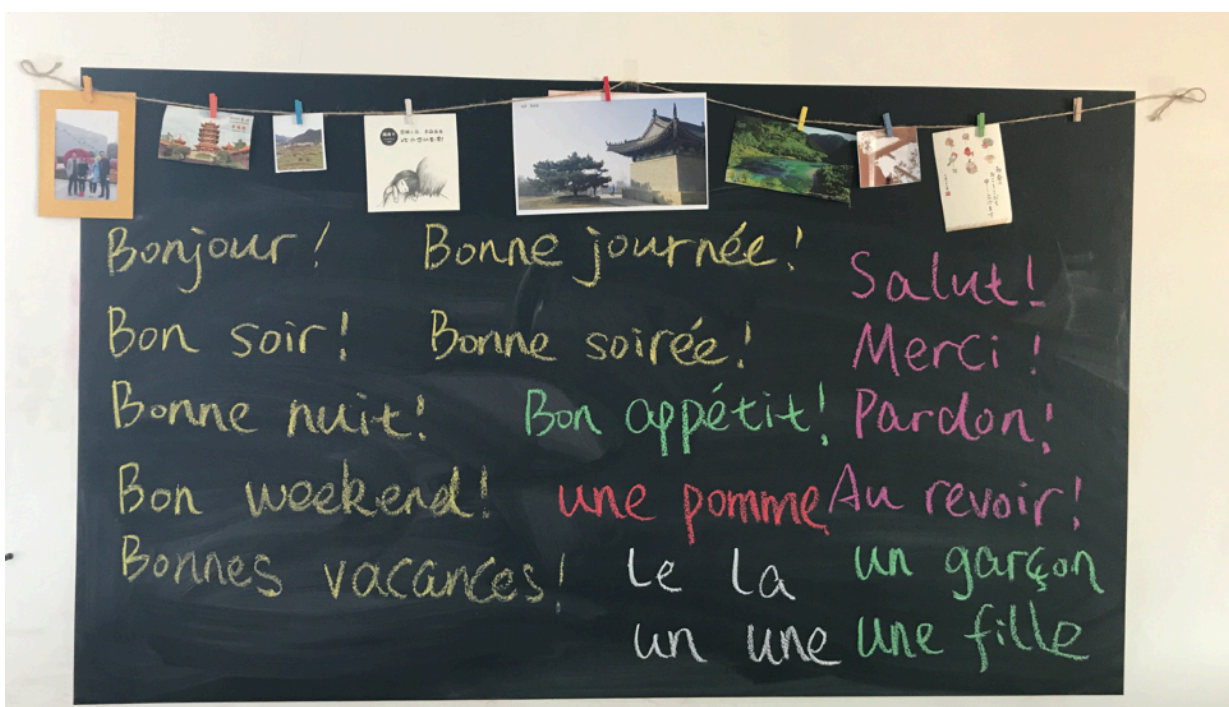 Bonjour! Bonne journée! Salut!
Bon soir! Bonne soirée! Merci!
Bonne nuit! Bon appétit! Pardon!
Bon weekend! une pomme Au revoir!
Bonnes vacances! le la un garçon
un une une fille